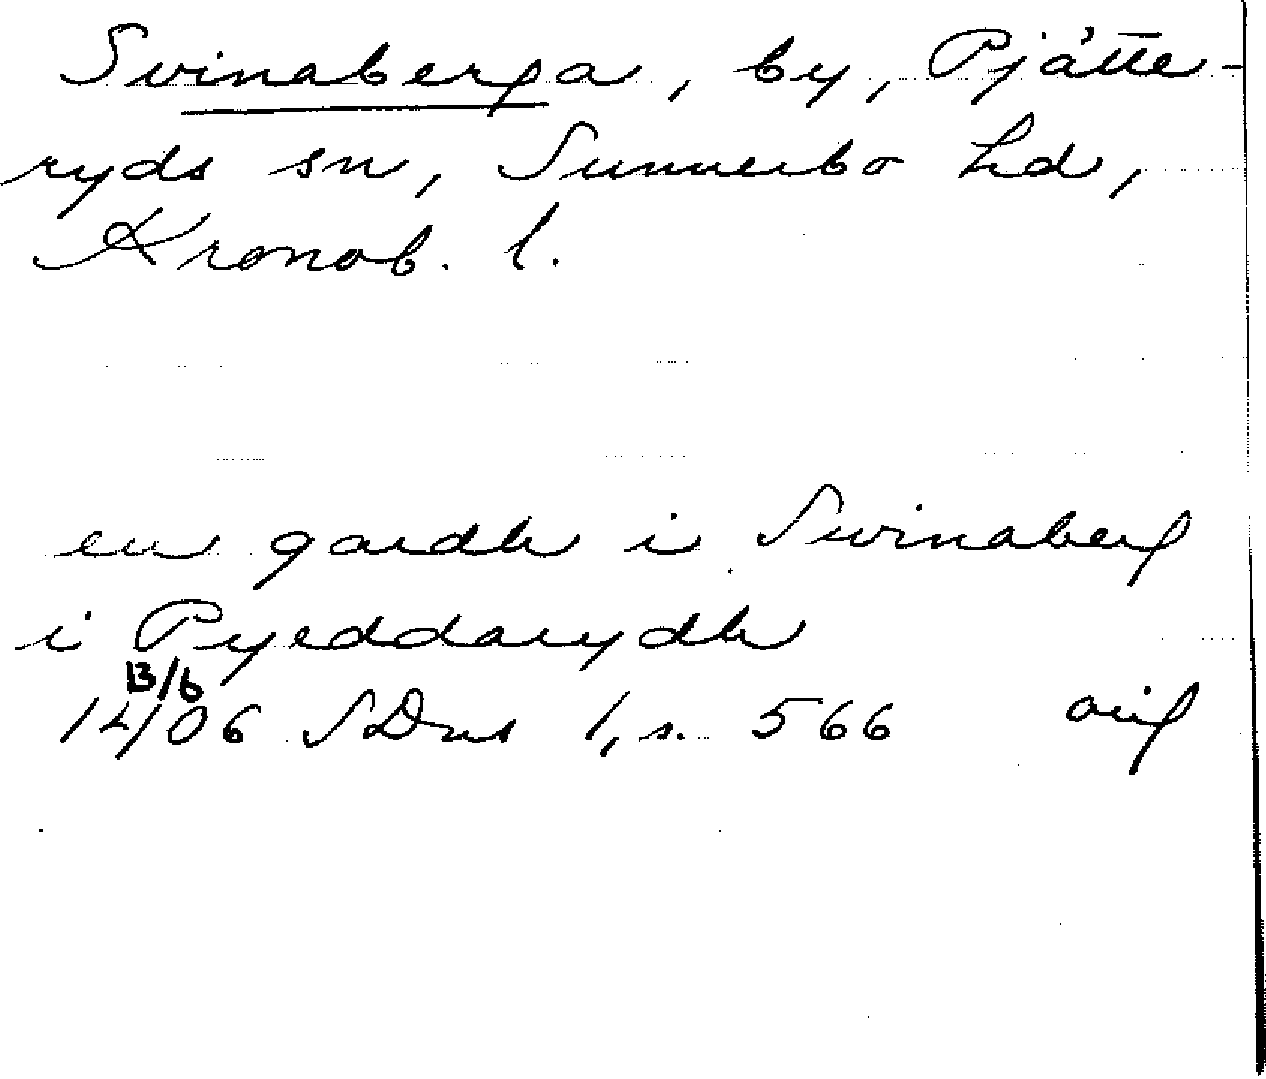 Svinaberga, by, Pjätte-
ryds sn, Sunnerbo hd,
Kronob. l.
en gardh i Swinaberg
i Pyeddarydh
13/6
14/06 SDns 1, s. 566 orig